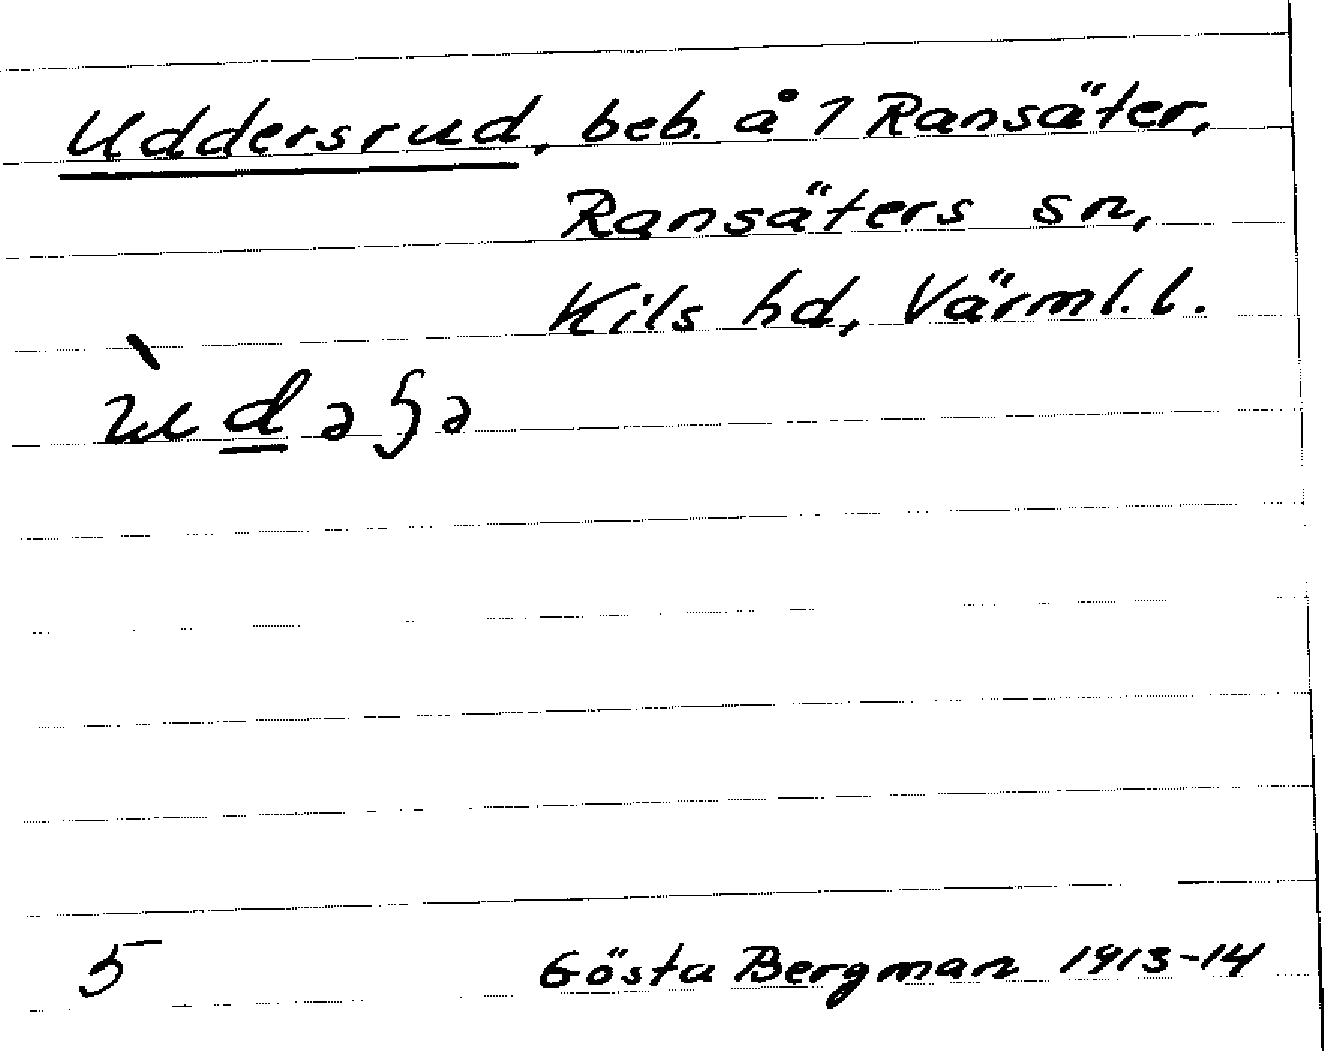 Uddersrud, beb. å 1 Ransäter,
Ransäters sn,
Kils hd, Värml. l.
5
Gösta Bergman 1913-14